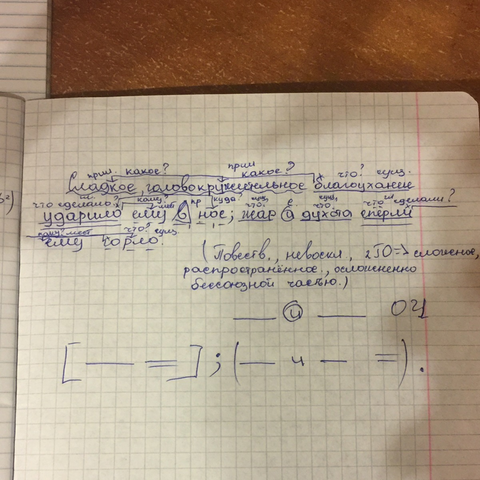 прил. какое? прил какое? что? сущ.
Сладкое, головокружительное благоухание
что сделало? гл. кому? мест пр куда? сущ. что? с. сущ. что? что гл сделали?
ударило ему в нос; жар и духота спёрли
кому? мест что? сущ.
ему горло.
(Повеств., невоскл, 2ГО=> сложное,
распространённое., осложненно
бессоюзной частью.)
и ОЧ
[ ] ; ( и ) .